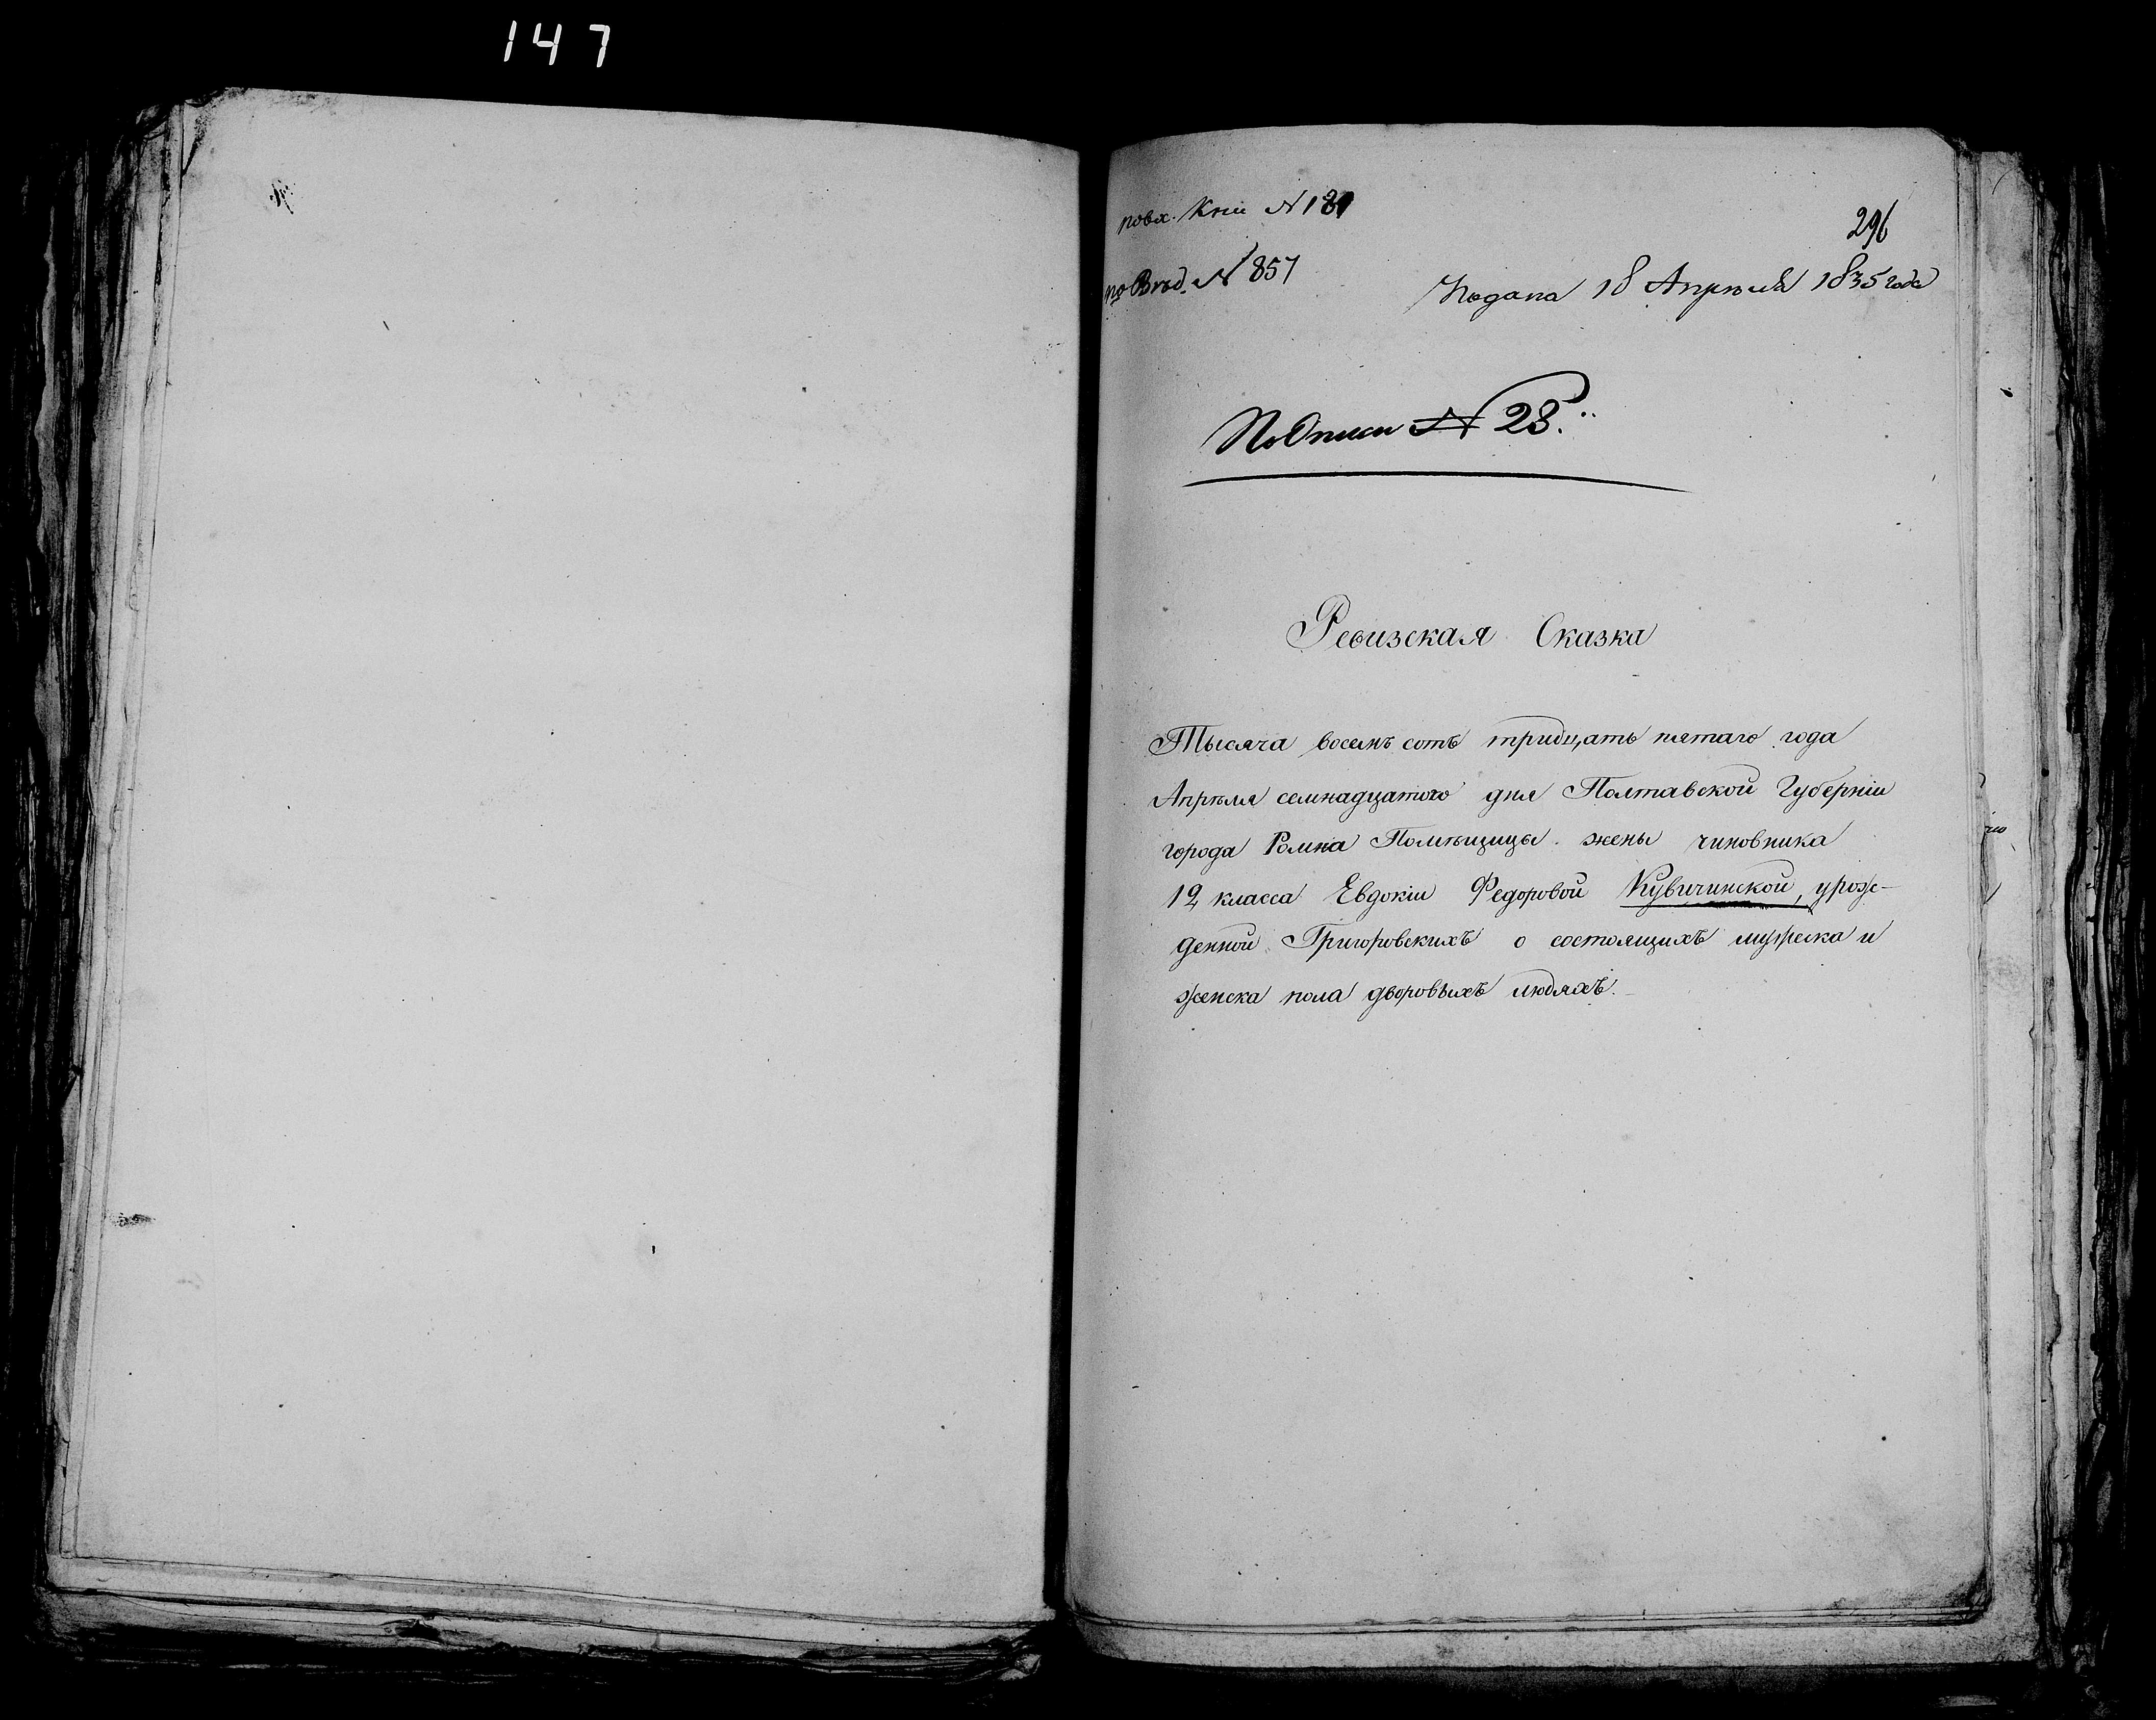 147
повх. Кни № 181
296
по Вѣд. № 857
Подана 18 Апрѣля 1835 года
По Описи № 28.
Ревизская Сказка
Тысяча восемъ сотъ тридцать пятаго года
Апрѣля семнадцатого дня Полтавской Губерніи
города Ромна Помѣщицы жены чиновника
12 класса Евдокіи Федоровой Кувичинской, урож-
денной Григоровскихъ о состоящихъ мужеска и
женска пола дворовыхъ людяхъ.